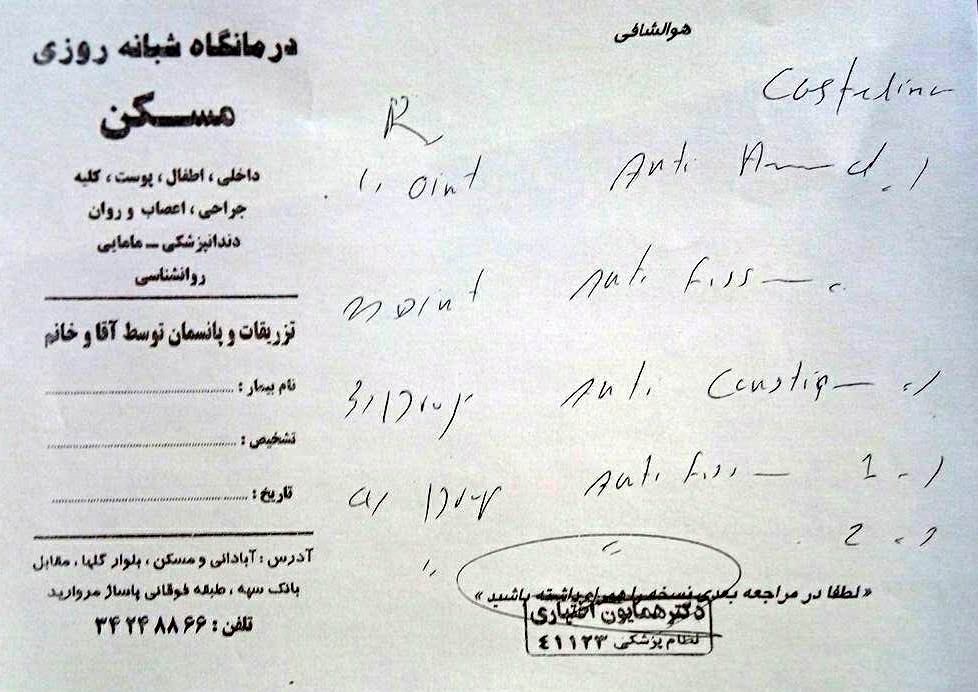 هوالشافی
درمانگاه شبانه روزی
مسکن
داخلی ، اطفال ، پوست ، کلیه
جراحی ، اعصاب و روان
دندانپزشکی ــ مامایی
روانشناسی
تزریقات و پانسمان توسط آقا و خانم
نام بیمار :
تشخیص :
تاریخ :
آدرس : آبادانی و مسکن ، بلوار گلها ، مقابل
بانک سپه ، طبقه فوقانی پاساژ مروارید
تلفن : ۳۴۲۴۸۸۶۶
R
1, oint Anti
2, oint Anti Fiss
3, Drop Anti Constip
Drop Anti Fiss 1
2
« لطفا در مراجعه بعدی نسخه را همراه داشته باشید »
دکتر همایون اختیاری
نظام پزشکی ۴۱۱۲۳